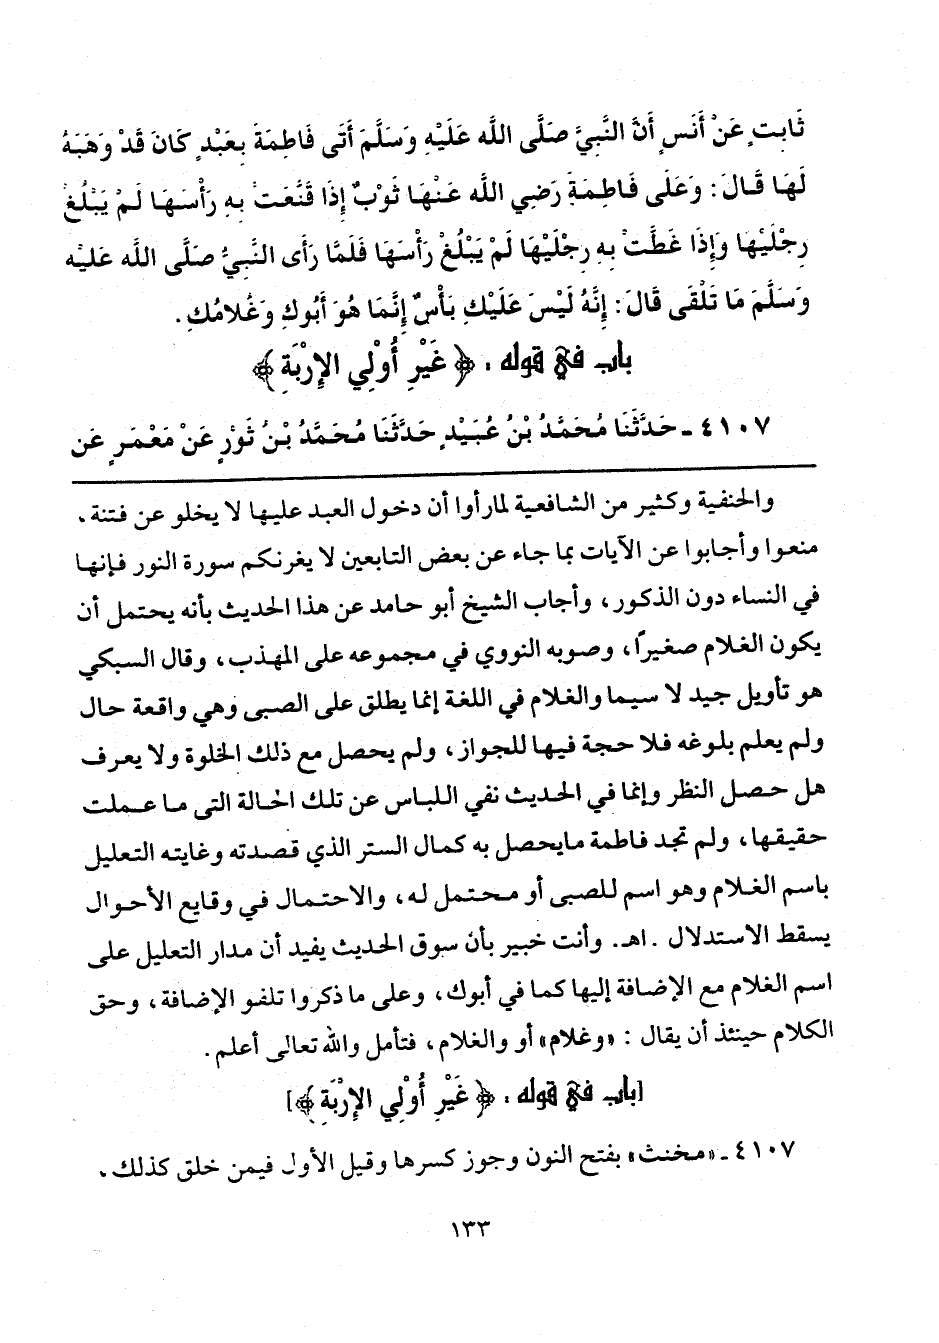 ثَابِتٍ عَنْ أَنَسٍ أَنَّ النَّبِيَّ صَلَّى اللَّه عَلَيْهِ وَسَلَّمَ أَتَى فَاطِمَةَ بِعَبْدٍ كَانَ قَدْ وَهَبَهُ
لَهَا قَالَ: وَعَلَى فَاطِمَةَ رَضِي اللَّه عَنْهَا ثَوْبٌ إِذَا قَنَّعَتْ بِهِ رَأْسَهَا لَمْ يَبْلُغْ
رِجْلَيْهَا وَإِذَا غَطَّتْ بِهِ رِجْلَيْهَا لَمْ يَبْلُغْ رَأْسَهَا فَلَمَّا رَأَى النَّبِيُّ صَلَّى اللَّه عَلَيْهِ
وَسَلَّمَ مَا تَلْقَى قَالَ: إِنَّهُ لَيْسَ عَلَيْكِ بَأْسٌ إِنَّمَا هُوَ أَبُوكِ وَغُلَامُكِ.
باب في قوله : ﴿ غَيْرِ أُوْلِي الإِرْبَةِ ﴾
٤١٠٧ ـ حَدَّثَنَا مُحَمَّدُ بْنُ عُبَيْدٍ حَدَّثَنَا مُحَمَّدُ بْنُ ثَوْرٍ عَنْ مَعْمَرٍ عَنِ
والحنفية وكثير من الشافعية لما رأوا أن دخول العبد عليها لا يخلو عن فتنة،
منعوا وأجابوا عن الآيات بما جاء عن بعض التابعين لا يغرنكم سورة النور فإنها
في النساء دون الذكور، وأجاب الشيخ أبو حامد عن هذا الحديث بأنه يحتمل أن
يكون الغلام صغيرًا، وصوبه النووي في مجموعه على المهذب، وقال السبكي
هو تأويل جيد لا سيما والغلام في اللغة إنما يطلق على الصبى وهي واقعة حال
ولم يعلم بلوغه فلا حجة فيها للجواز، ولم يحصل مع ذلك الخلوة ولا يعرف
هل حصل النظر وإنما في الحديث نفي اللباس عن تلك الحالة التى ما عملت
حقيقها، ولم تجد فاطمة مايحصل به كمال الستر الذي قصدته وغايته التعليل
باسم الغلام وهو اسم للصبى أو محتمل له، والاحتمال في وقايع الأحوال
يسقط الاستدلال .اهـ. وأنت خبير بأن سوق الحديث يفيد أن مدار التعليل على
اسم الغلام مع الإضافة إليها كما في أبوك، وعلى ما ذكروا تلفو الإضافة، وحق
الكلام حينئذ أن يقال : «وغلام» أو والغلام، فتأمل والله تعالى أعلم.
[باب في قوله : ﴿ غَيْرِ أُوْلِي الإِرْبَةِ ﴾]
٤١٠٧ ـ «مخنث» بفتح النون وجوز كسرها وقيل الأول فيمن خلق كذلك،
١٣٣